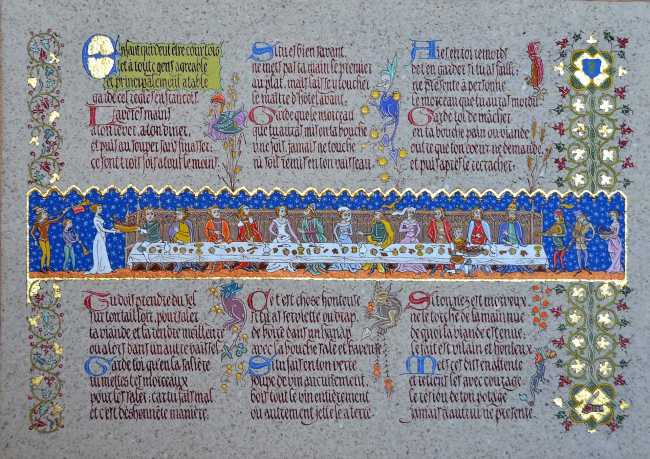 Enfant qui veut être courtois
et à toute gens agréable
et principalement à table
garde ces règles en français
Lave tes mains
à ton lever, à ton dîner,
et puis au souper sans finasser:
ce sont trois fois à tout le moins.
Si tu es bien savant,
ne mets pas ta main le premier
au plat, mais laisse y toucher
le maître d'hôtel avant.
Garde que le morceau
que tu auras mis en ta bouche
une fois, jamais ne touche
ni soit remis en ton vaisseau.
Aie en toi remords
de t'en garder si tu as failli:
ne présente à personne
le morceau que tu auras mordu
Garde toi de mâcher
en ta bouche pain ou viande
outre que ton coeur ne demande,
et puis après le recracher.
Tu dois prendre du sel
sur ton tailloir, pour saler
ta viande et la rendre meilleure
ou alors dans un autre vaissel
Garde toi qu'en la salière
tu mettes tes morceaux
pour les saler: car tu fais mal
et c'est déshonnête manière.
C'est chose honteuse
si tu as serviette ou drap
de boire dans un hanap
avec la bouche sale et baveuse
Si tu fais en ton verre
soupe de vin aucunement,
bois tout le vin entièrement
ou autrement jette le à terre
Si ton nez est morveux
ne le torche de la main nue
de quoi la viande est tenue:
le fait est vilain et honteux
Mets ces dits en attente
et retient les avec courage
le de ton potage
jamais à autrui ne présente.